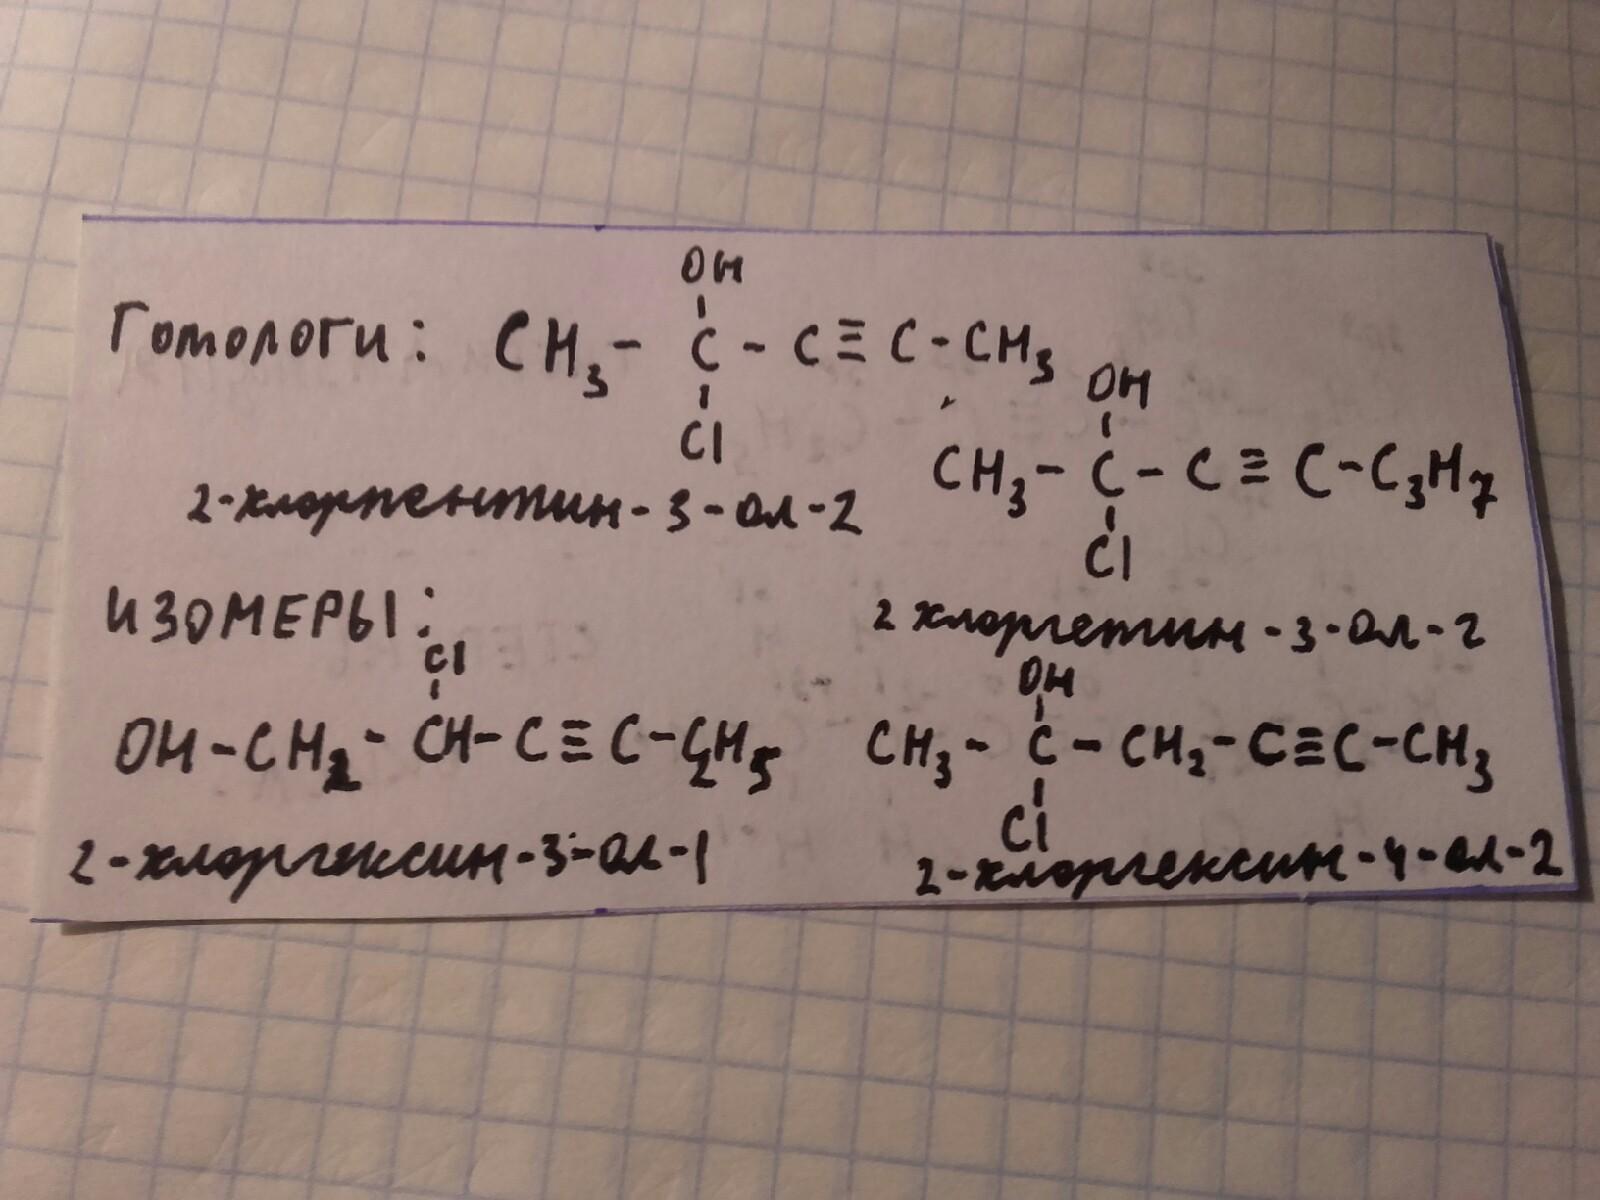 Гомологи: CH₃ - C - C ≡ C - CH₃
OH
Cl
2-хлорпентин-3-ол-2
OH
CH₃ - C - C ≡ C - C₃H₇
Cl
2 хлоргетин-3-ол-2
ИЗОМЕРЫ:
Cl
OH - CH₂ - CH - C ≡ C - C₂H₅
2-хлоргексин-3-ол-1
OH
CH₃ - C - CH₂ - C ≡ C - CH₃
Cl
2-хлоргексин-4-ол-2